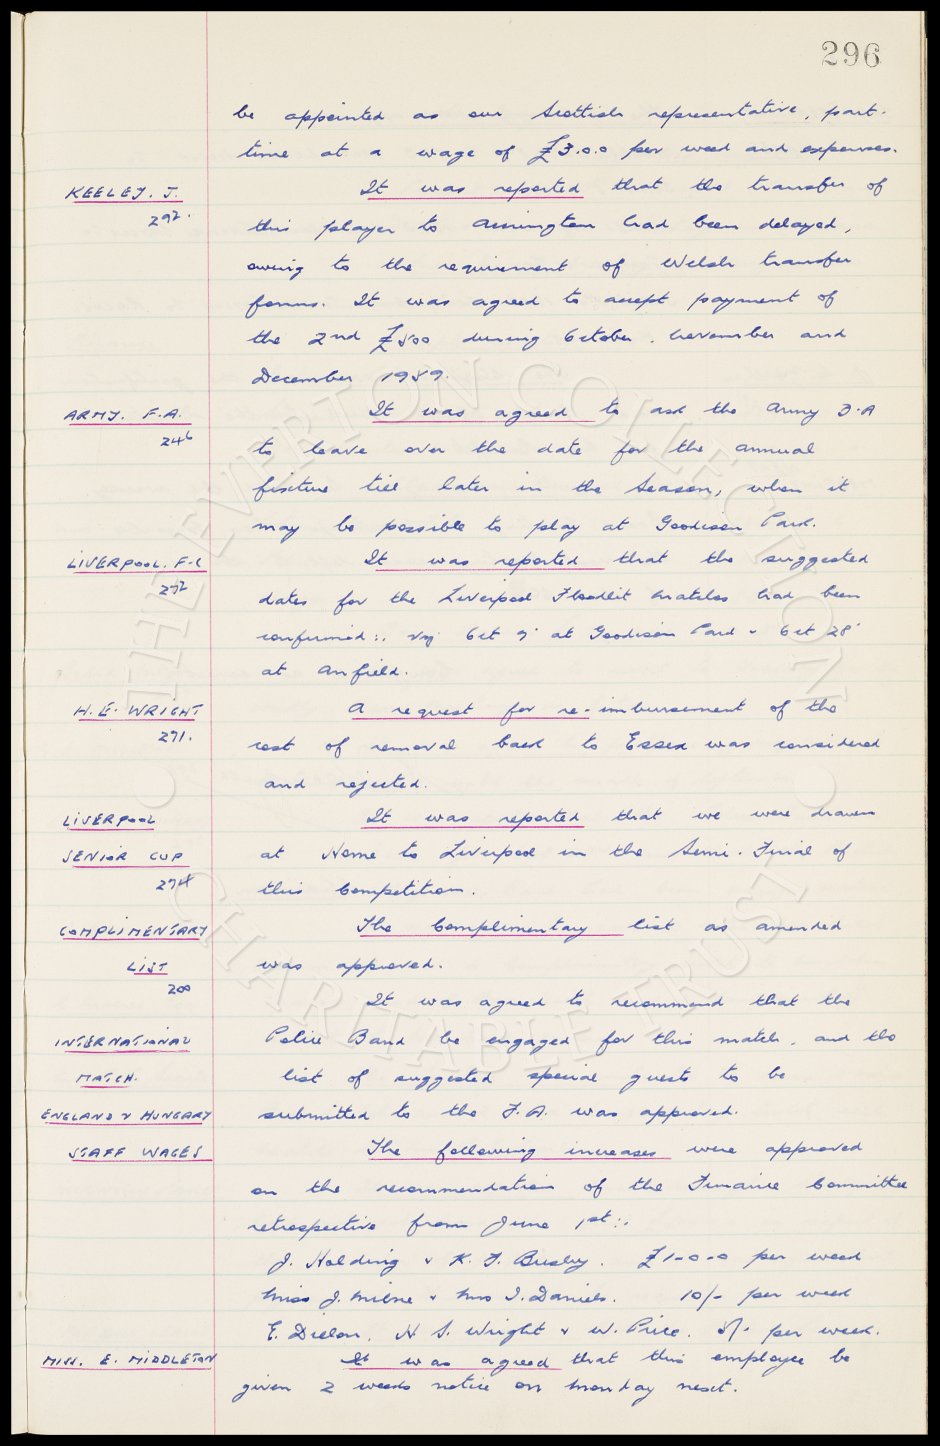 296
be appointed as our Scottish representative, part.
time at a wage of £3.0.0 per week and expenses.
KEELEY. J. It was reported that the transfer of
292. this player to Accrington had been delayed,
owing to the requirement of Welsh transfer
forms. It was agreed to accept payment of
the 2nd £500 during October, November and
December 1959.
ARMY. F.A. It was agreed to ask the Army F.A
246 to leave over the date for the annual
fixture till later in the Season, when it
may be possible to play at Goodison Park.
LIVERPOOL. F.C It was reported that the suggested
272 dates for the Liverpool Floodlit matches had been
confirmed:. viz Oct 7 at Goodison Park & Oct 28
at Anfield.
H.E. WRIGHT A request for re-imbursement of the
291. cost of removal back to Essex was considered
and rejected.
LIVERPOOL It was reported that we were drawn
SENIOR CUP at Home to Liverpool in the Semi-Final of
274 this Competition.
COMPLIMENTARY The Complimentary list as amended
LIST was approved.
200 It was agreed to recommend that the
INTERNATIONAL Police Band be engaged for this match, and the
MATCH. list of suggested special guests to be
ENGLAND V HUNGARY submitted to the F.A. was approved.
STAFF WAGES The following increases were approved
on the recommendation of the Finance Committee
retrospective from June 1st:.
J. Holding & K. F. Busby. £1-0-0 per week
Miss J. Milne & Mrs I. Daniels. 10/- per week
E. Dielon, H. S. Wright & W. Price. 5/- per week.
MISS. E. MIDDLETON It was agreed that this employee be
given 2 weeks notice on Monday next.
THE EVERTON COLLECTION
CHARITABLE TRUST